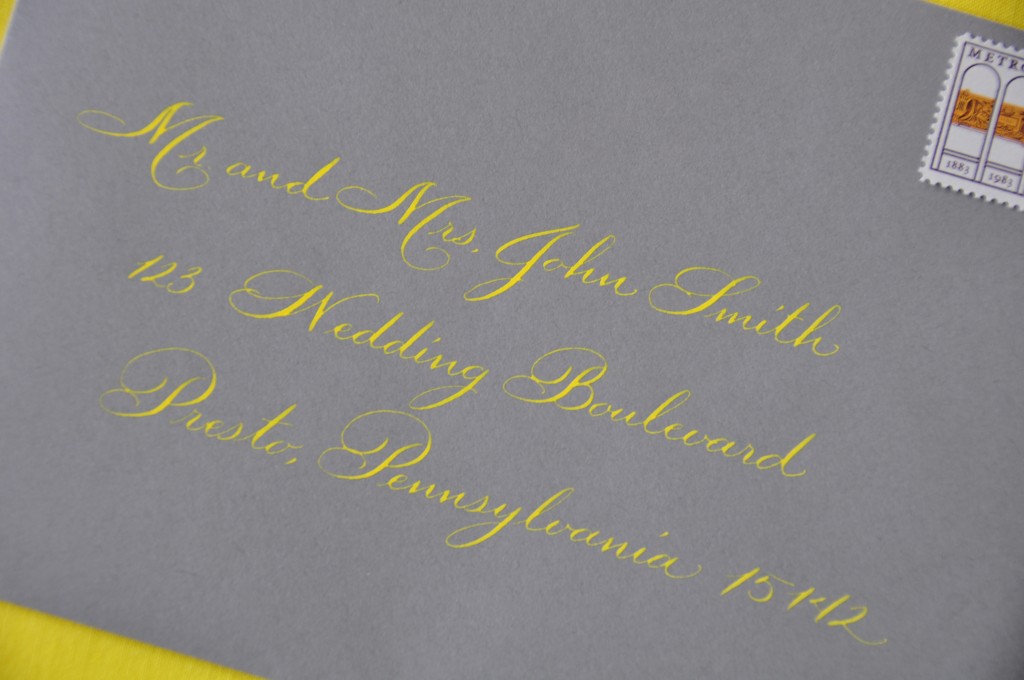 Mr. and Mrs. John Smith
123 Wedding Boulevard
Presto, Pennsylvania 15142
METRO
1883
1983